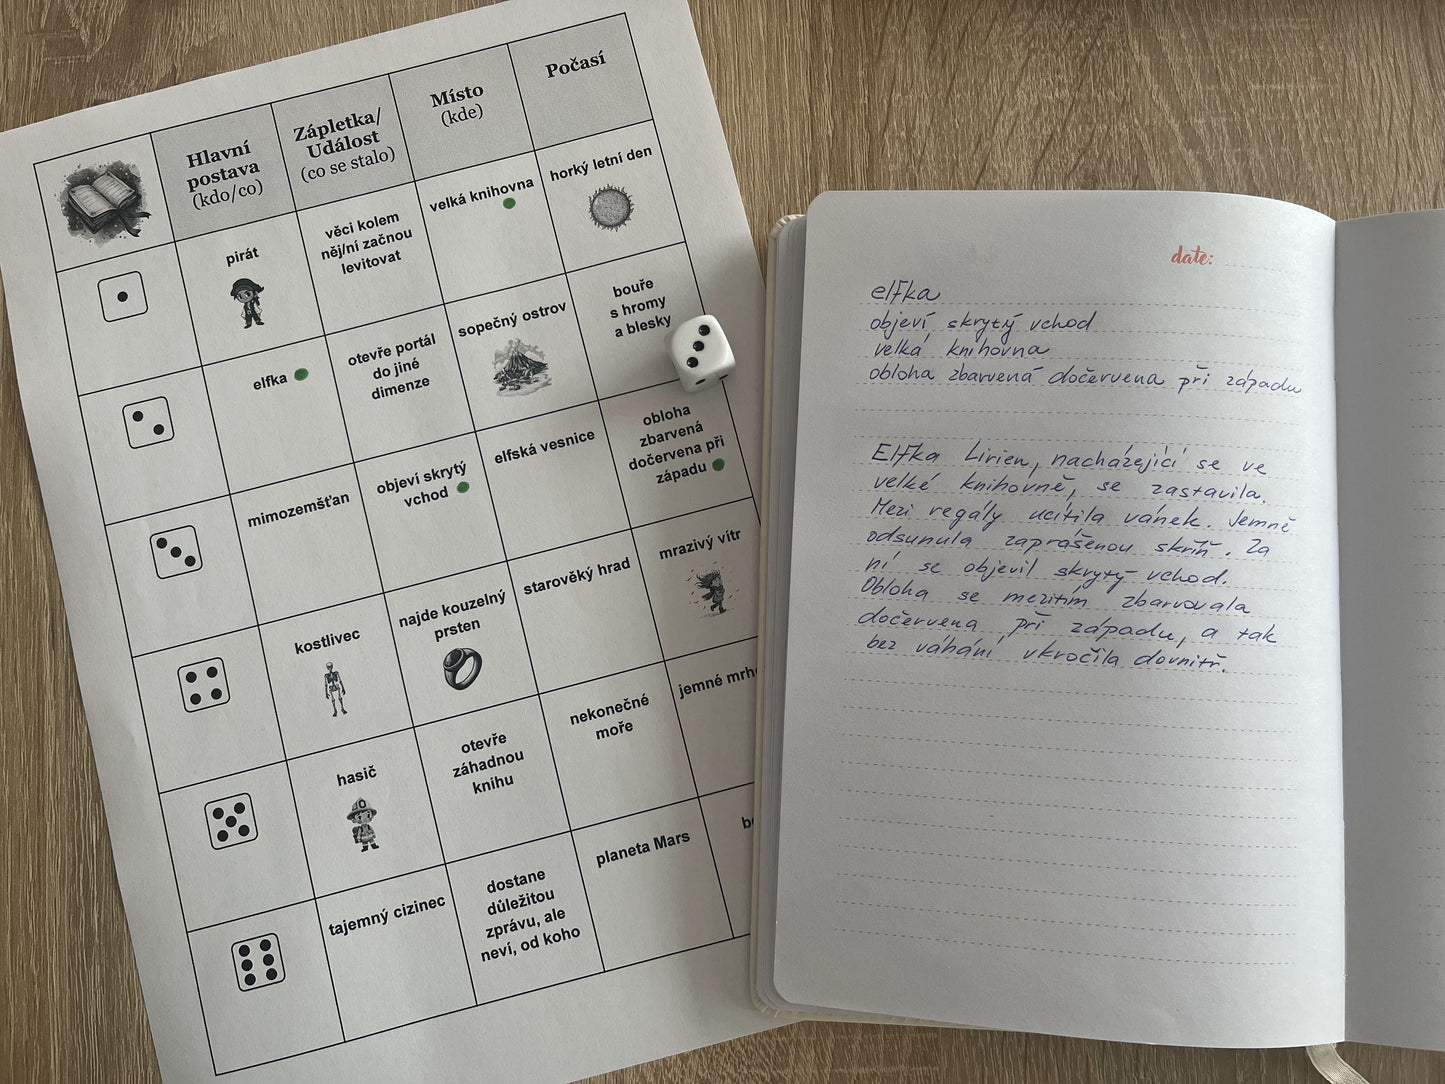 Hlavní
postava
(kdo/co)
Zápletka/
Událost
(co se stalo)
Místo
(kde)
Počasí
pirát
věci kolem
něj/ní začnou
levitovat
velká knihovna
horký letní den
elfka
otevře portál
do jiné
dimenze
sopečný ostrov
bouře
s hromy
a blesky
mimozemšťan
objeví skrytý
vchod
elfská vesnice
obloha
zbarvená
dočervena při
západu
kostlivec
najde kouzelný
prsten
starověký hrad
mrazivý vítr
hasič
otevře
záhadnou
knihu
nekonečné
moře
jemné
tajemný cizinec
dostane
důležitou
zprávu, ale
neví, od koho
planeta Mars
date:
elfka
objeví skrytý vchod
velká knihovna
obloha zbarvená dočervena při západu
Elfka Lirien, nacházející se ve
velké knihovně, se zastavila.
Mezi regály ucítila vánek. Jemně
odsunula zaprášenou skříň. Za
ní se objevil skrytý vchod.
Obloha se mezitím zbarvovala
dočervena při západu, a tak
bez váhání vkročila dovnitř.